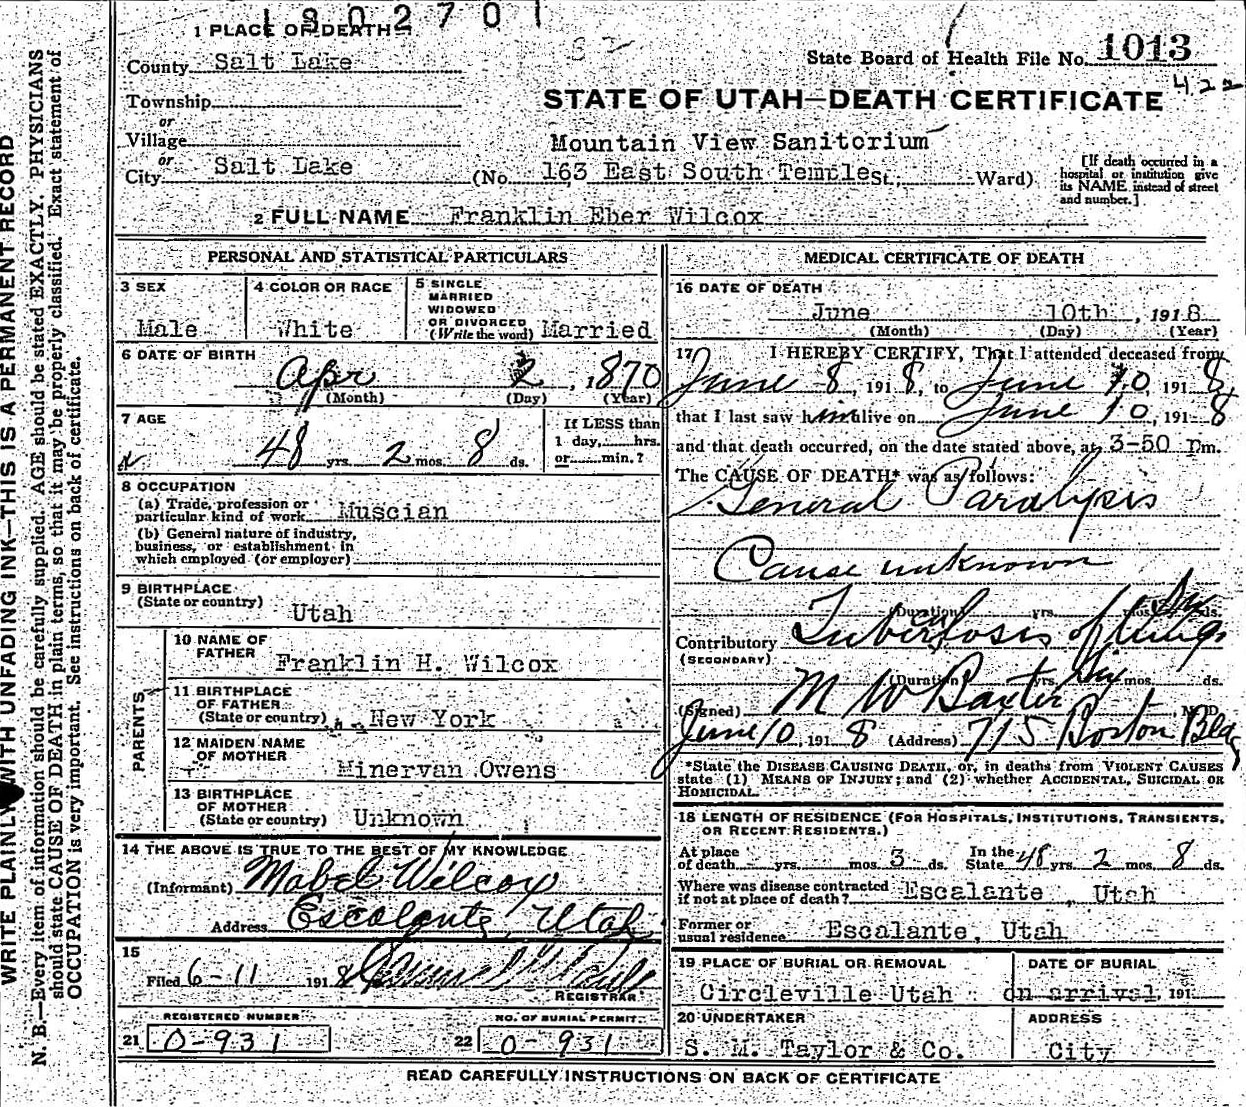 1802701
1 PLACE OF DEATH
State Board of Health File No. 1013
County Salt Lake
422
Township
STATE OF UTAH—DEATH CERTIFICATE
or
Village
Mountain View Sanitorium
or
City Salt Lake (No. 163 East South Temple St., Ward)
[If death occurred in a hospital or institution give its NAME instead of street and number.]
2 FULL NAME Franklin Eber Wilcox
PERSONAL AND STATISTICAL PARTICULARS
3 SEX Male
4 COLOR OR RACE White
5 SINGLE, MARRIED WIDOWED OR DIVORCED (Write the word) Married
6 DATE OF BIRTH Apr 2, 1870
(Month) (Day) (Year)
7 AGE 48 yrs. 2 mos. 8 ds.
If LESS than 1 day, hrs. or min.?
8 OCCUPATION
(a) Trade, profession or particular kind of work Muscian
(b) General nature of industry, business, or establishment in which employed (or employer)
9 BIRTHPLACE (State or country) Utah
PARENTS
10 NAME OF FATHER Franklin H. Wilcox
11 BIRTHPLACE OF FATHER (State or country) New York
12 MAIDEN NAME OF MOTHER Minervan Owens
13 BIRTHPLACE OF MOTHER (State or country) Unknown
14 THE ABOVE IS TRUE TO THE BEST OF MY KNOWLEDGE
(Informant) Mabel Wilcox
Address Escalante, Utah
15
Filed 6-11 1918
REGISTRAR
REGISTERED NUMBER
21 0-931
NO. OF BURIAL PERMIT
22 0-931
MEDICAL CERTIFICATE OF DEATH
16 DATE OF DEATH
June 10th, 1918
(Month) (Day) (Year)
17 I HEREBY CERTIFY, That I attended deceased from
June 8, 1918, to June 10, 1918,
that I last saw him alive on June 10, 1918
and that death occurred, on the date stated above, at 3-50 Pm.
The CAUSE OF DEATH* was as follows:
General Paralysis
Cause unknown
(Duration) yrs. mos. ds.
Contributory (SECONDARY) Tuberculosis of lungs
(Duration) yrs. Six mos. ds.
(Signed) M W Baxter, M. D.
June 10, 1918 (Address) 715 Boston Bldg
*State the DISEASE CAUSING DEATH, or, in deaths from VIOLENT CAUSES
state (1) MEANS OF INJURY; and (2) whether ACCIDENTAL, SUICIDAL OR
HOMICIDAL.
18 LENGTH OF RESIDENCE (FOR HOSPITALS, INSTITUTIONS, TRANSIENTS, OR RECENT RESIDENTS.)
At place of death yrs. mos. 3 ds. In the State 48 yrs. 2 mos. 8 ds.
Where was disease contracted if not at place of death? Escalante, Utah
Former or usual residence Escalante, Utah
19 PLACE OF BURIAL OR REMOVAL
Circleville Utah
DATE OF BURIAL
on arrival, 191
20 UNDERTAKER
S. M. Taylor & Co.
ADDRESS
City
READ CAREFULLY INSTRUCTIONS ON BACK OF CERTIFICATE
WRITE PLAINLY WITH UNFADING INK—THIS IS A PERMANENT RECORD
N. B.—Every item of information should be carefully supplied. AGE should be stated EXACTLY. PHYSICIANS
should state CAUSE OF DEATH in plain terms, so that it may be properly classified. Exact statement of
OCCUPATION is very important. See instructions on back of certificate.